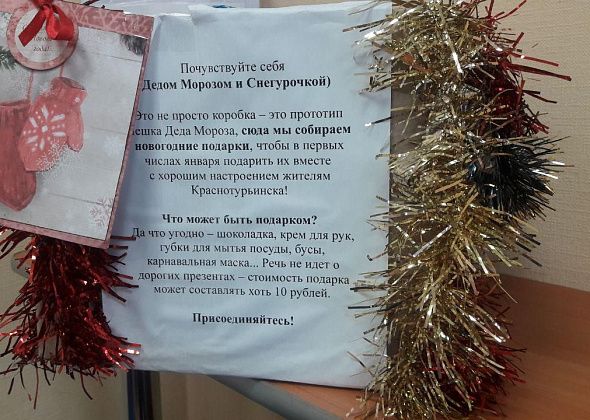 Почувствуйте себя
Дедом Морозом и Снегурочкой)
Это не просто коробка – это прототип
мешка Деда Мороза, сюда мы собираем
новогодние подарки, чтобы в первых
числах января подарить их вместе
с хорошим настроением жителям
Краснотурьинска!
Что может быть подарком?
Да что угодно – шоколадка, крем для рук,
губки для мытья посуды, бусы,
карнавальная маска... Речь не идет о
дорогих презентах – стоимость подарка
может составлять хоть 10 рублей.
Присоединяйтесь!